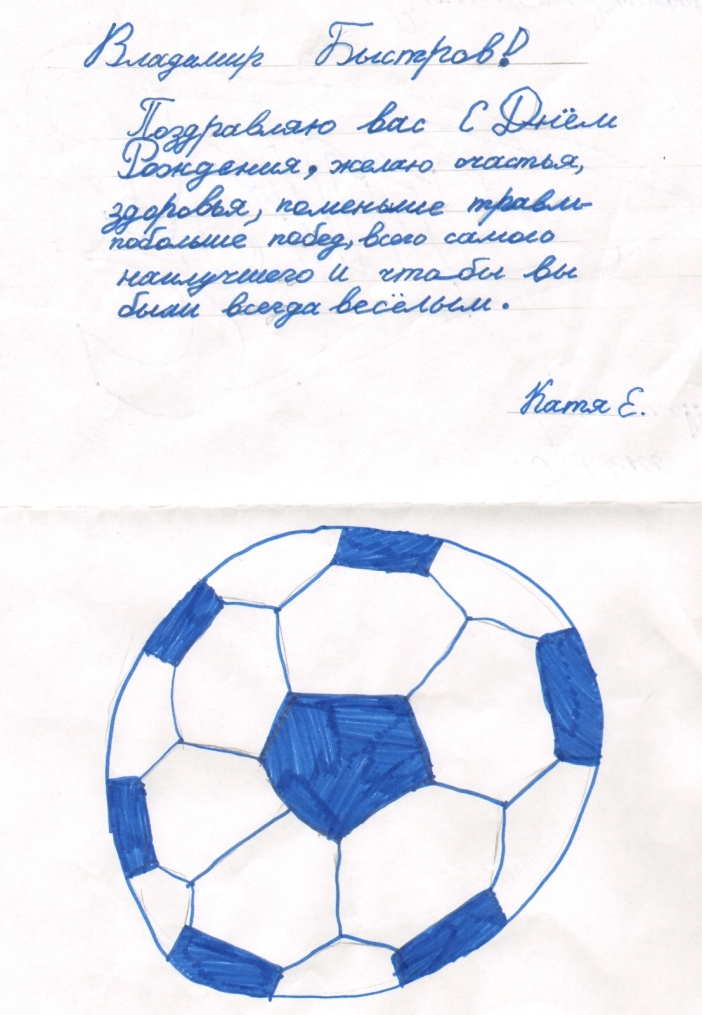 Владимир Быстров!
Поздравляю вас с Днём
Рождения, желаю счастья,
здоровья, поменьше травм-
побольше побед, всего самого
наилучшего и что бы вы
были всегда весёлым.
Катя Е.